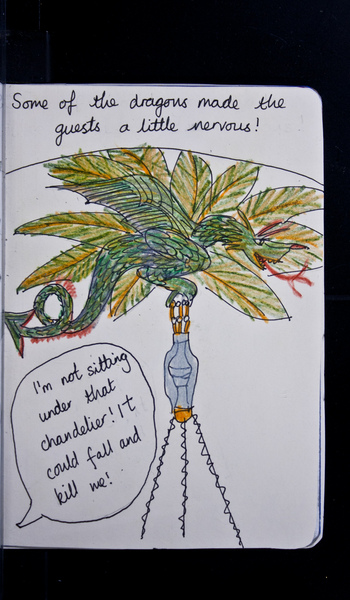 Some of the dragons made the
guests a little nervous!
I'm not sitting
under that
chandelier! It
could fall and
kill me!